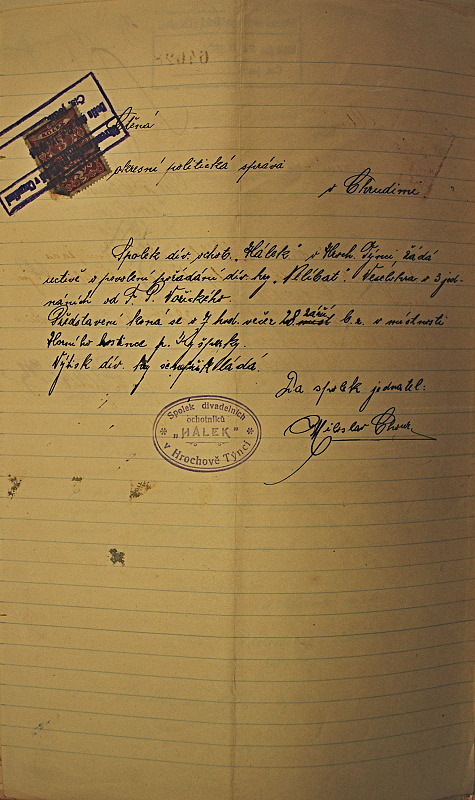 Ctěná
okresní politická správa
v Chrudimi
Spolek div. ochot. „Hálek" v Hroch. Týnci žádá
uctivě o povolení pořádání div. hry „ Veselohra o 3 jed-
náních od F. 
Představení koná se o 7 hod. večer 28. září b. r. v místnosti
Horního hostince p. 
Výtisk div. hry se
Za spolek jednatel:
Miloslav
Spolek divadelních
ochotníků
„HÁLEK"
v Hrochově Týnci